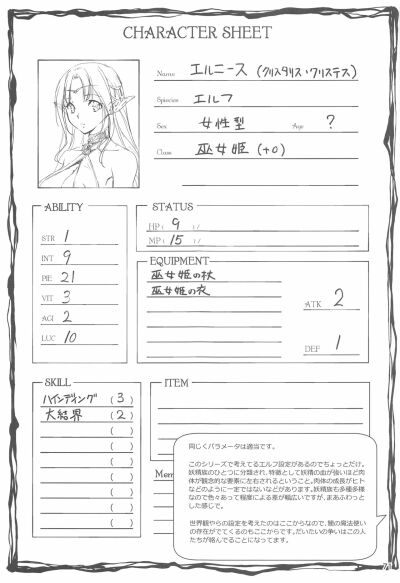 CHARACTER SHEET
Name エルニース (クリスタリス・クリステス)
Spiecies エルフ
Sex 女性型 Age ?
Class 巫女姫 (+0)
ABILITY
STR 1
INT 9
PIE 21
VIT 3
AGI 2
LUC 10
STATUS
HP: 9 :/
MP: 15 :/
EQUIPMENT
巫女姫の杖
巫女姫の衣
ATK 2
DEF 1
SKILL
ハインディング (3)
大結界 (2)
( )
( )
( )
( )
( )
( )
( )
ITEM
Mem
同じくパラメータは適当です。
このシリーズで考えてるエルフ設定があるのでちょっとだけ。
妖精族のひとつに分類され、特徴として妖精の血が強いほど肉
体が観念的な要素に左右されるということ。肉体の成長がヒト
などのように一定ではないなどがあります。妖精族も多種多様
なので色々あって程度による差が幅広いですが、まあふわっと
した感じで。
世界観やらの設定を考えたのはここからなので、闇の魔法使い
の存在がでてくるのもここからです。だいたいの争いはこの人
たちが絡んでることになってます。
71